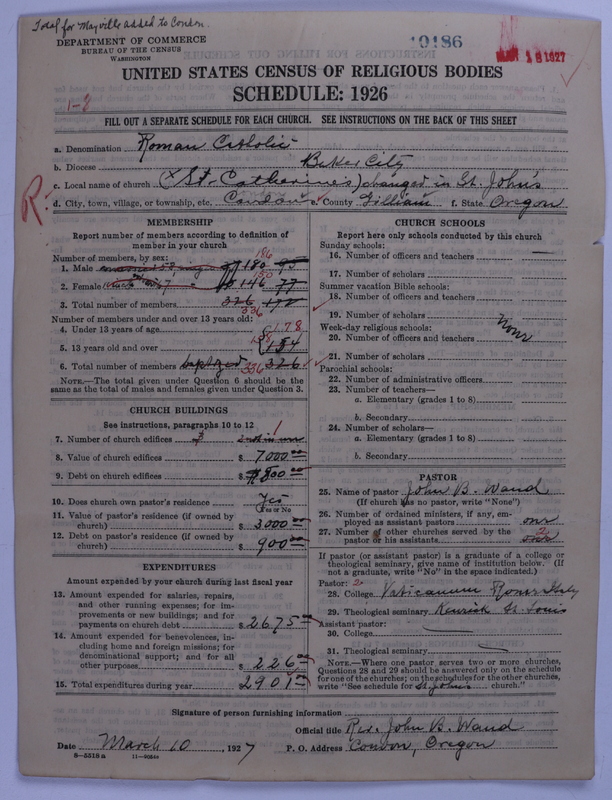 Total for Mayville added to Condon.
DEPARTMENT OF COMMERCE
BUREAU OF THE CENSUS
WASHINGTON
10186
MAY 18 1927
UNITED STATES CENSUS OF RELIGIOUS BODIES
SCHEDULE: 1926
1-8
FILL OUT A SEPARATE SCHEDULE FOR EACH CHURCH. SEE INSTRUCTIONS ON THE BACK OF THIS SHEET
a. Denomination Roman Catholic
b. Diocese Baker City
c. Local name of church (St. Catherine's) changed in St. John's
R.
d. City, town, village, or township, etc. Condon e. County Gilliam f. State Oregon
MEMBERSHIP
Report number of members according to definition of
member in your church
Number of members, by sex:
186
1. Male 180 95
150
2. Female 146 77
3. Total number of members 326 172
336
Number of members under and over 13 years old:
4. Under 13 years of age 178
5. 13 years old and over 158 154
6. Total number of members baptized 336 326
NOTE.—The total given under Question 6 should be the
same as the total of males and females given under Question 3.
CHURCH BUILDINGS
See instructions, paragraphs 10 to 12
7. Number of church edifices 1
8. Value of church edifices $ 7000 00
9. Debt on church edifices $ 800 00
10. Does church own pastor's residence Yes
(Yes or No)
11. Value of pastor's residence (if owned by
church) $ 3000 00
12. Debt on pastor's residence (if owned by
church) $ 900 00
EXPENDITURES
Amount expended by your church during last fiscal year
13. Amount expended for salaries, repairs,
and other running expenses; for im-
provements or new buildings; and for
payments on church debt $ 2675 00
14. Amount expended for benevolences, in-
cluding home and foreign missions; for
denominational support; and for all
other purposes $ 226 00
15. Total expenditures during year $ 2901 00
CHURCH SCHOOLS
Report here only schools conducted by this church
Sunday schools:
16. Number of officers and teachers
17. Number of scholars
Summer vacation Bible schools:
18. Number of officers and teachers
19. Number of scholars none
Week-day religious schools:
20. Number of officers and teachers
21. Number of scholars
Parochial schools:
22. Number of administrative officers
23. Number of teachers—
a. Elementary (grades 1 to 8)
b. Secondary
24. Number of scholars—
a. Elementary (grades 1 to 8)
b. Secondary
PASTOR
25. Name of pastor John B. Wand
(If church has no pastor, write "None")
26. Number of ordained ministers, if any, em-
ployed as assistant pastors one
27. Number of other churches served by the
pastor or his assistants 2
If pastor (or assistant pastor) is a graduate of a college or
theological seminary, give name of institution below. (If
not a graduate, write "No" in the space indicated.)
Pastor: 2
28. College Vaticanum Rome Italy
29. Theological seminary Kenrick St. Louis
Assistant pastor:
30. College
31. Theological seminary
NOTE.—Where one pastor serves two or more churches,
Questions 28 and 29 should be answered only on the schedule
for one of the churches; on the schedules for the other churches,
write "See schedule for St. John's church."
Signature of person furnishing information
Official title Rev. John B. Wand
Date March 10, 1927 P. O. Address Condon, Oregon
8—5518 a